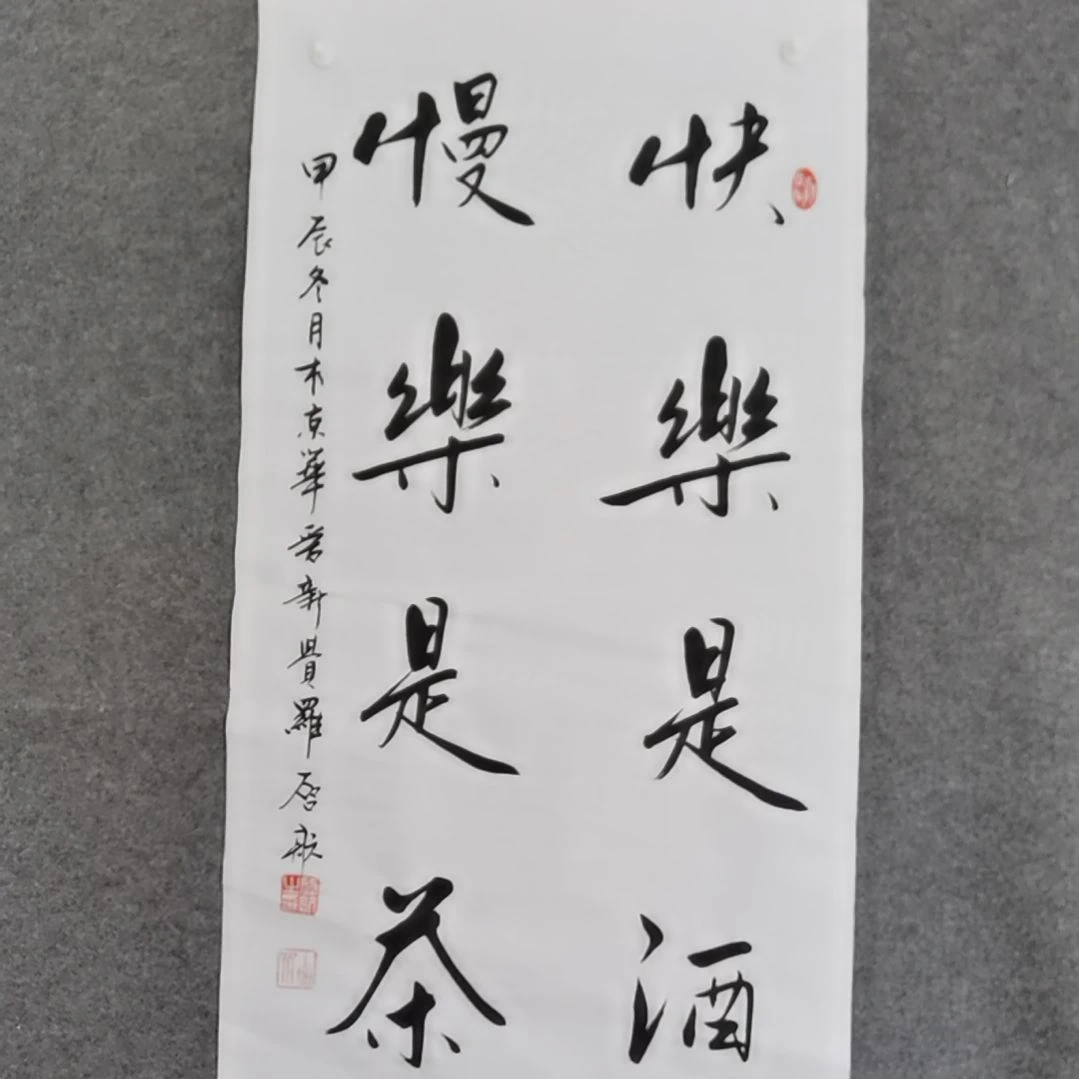 快樂是酒
慢樂是茶
甲辰冬月 京華 新貴羅啓